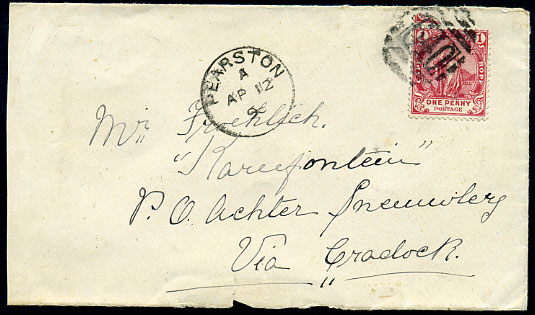 PEARSTON
A
AP 12
ONE PENNY
POSTAGE
Mr Froehlich.
"Kareefontein"
P. O. Achter Sneeuwberg
Via Cradock.